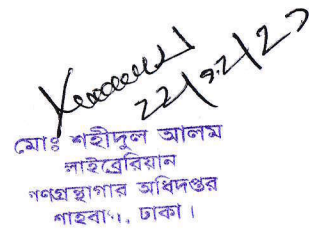 22/12/23
মোঃ শহীদুল আলম
লাইব্রেরিয়ান
গণগ্রন্থাগার অধিদপ্তর
শাহবাগ, ঢাকা।